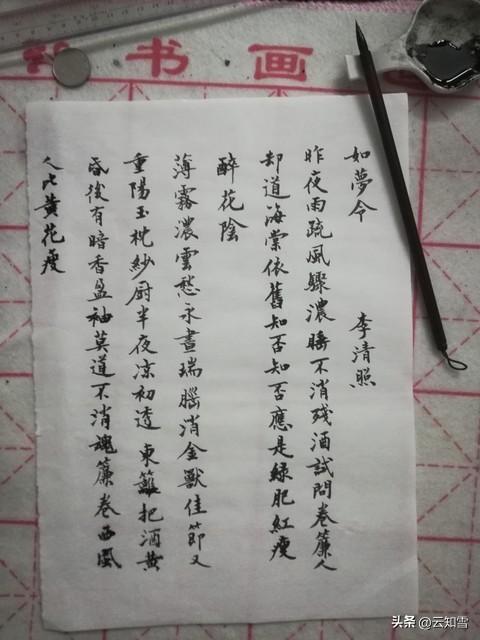 书画
如夢令 李清照
昨夜雨疏風驟濃睡不消殘酒試問卷簾人
却道海棠依舊知否知否應是綠肥紅瘦
醉花陰
薄霧濃雲愁永晝瑞腦消金獸佳節又
重陽玉枕紗厨半夜凉初透東籬把酒黄
昏後有暗香盈袖莫道不消魂簾卷西風
人比黃花瘦
头条 @云知雪